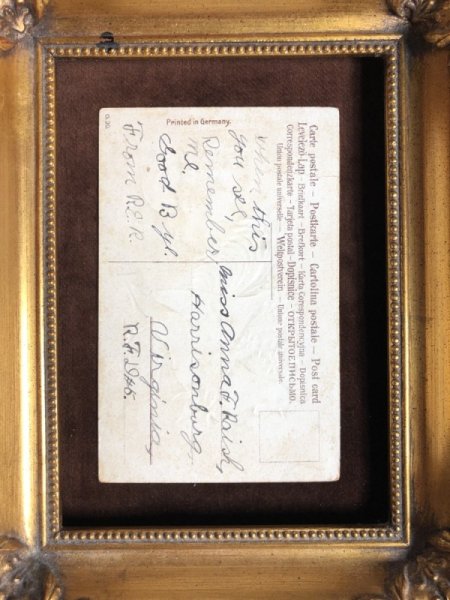 Carte postale – Postkarte – Cartolina postale – Post card
Levelező-Lap – Briefkaart – Brefkort – Karta Corespondencyjna – Dopisnica
Correspondenzkarte – Tarjeta postal – Dopisnice – ОТКРЫТОЕ ПИСЬМО.
Union postale universelle – Weltpostverein – Unione postale universale
Printed in Germany.
When this
you see,
Remember
me.
Good By.
From R.C.R.
Miss Anna F. Raish,
Harrisonburg,
Virginia,
R.F.D.